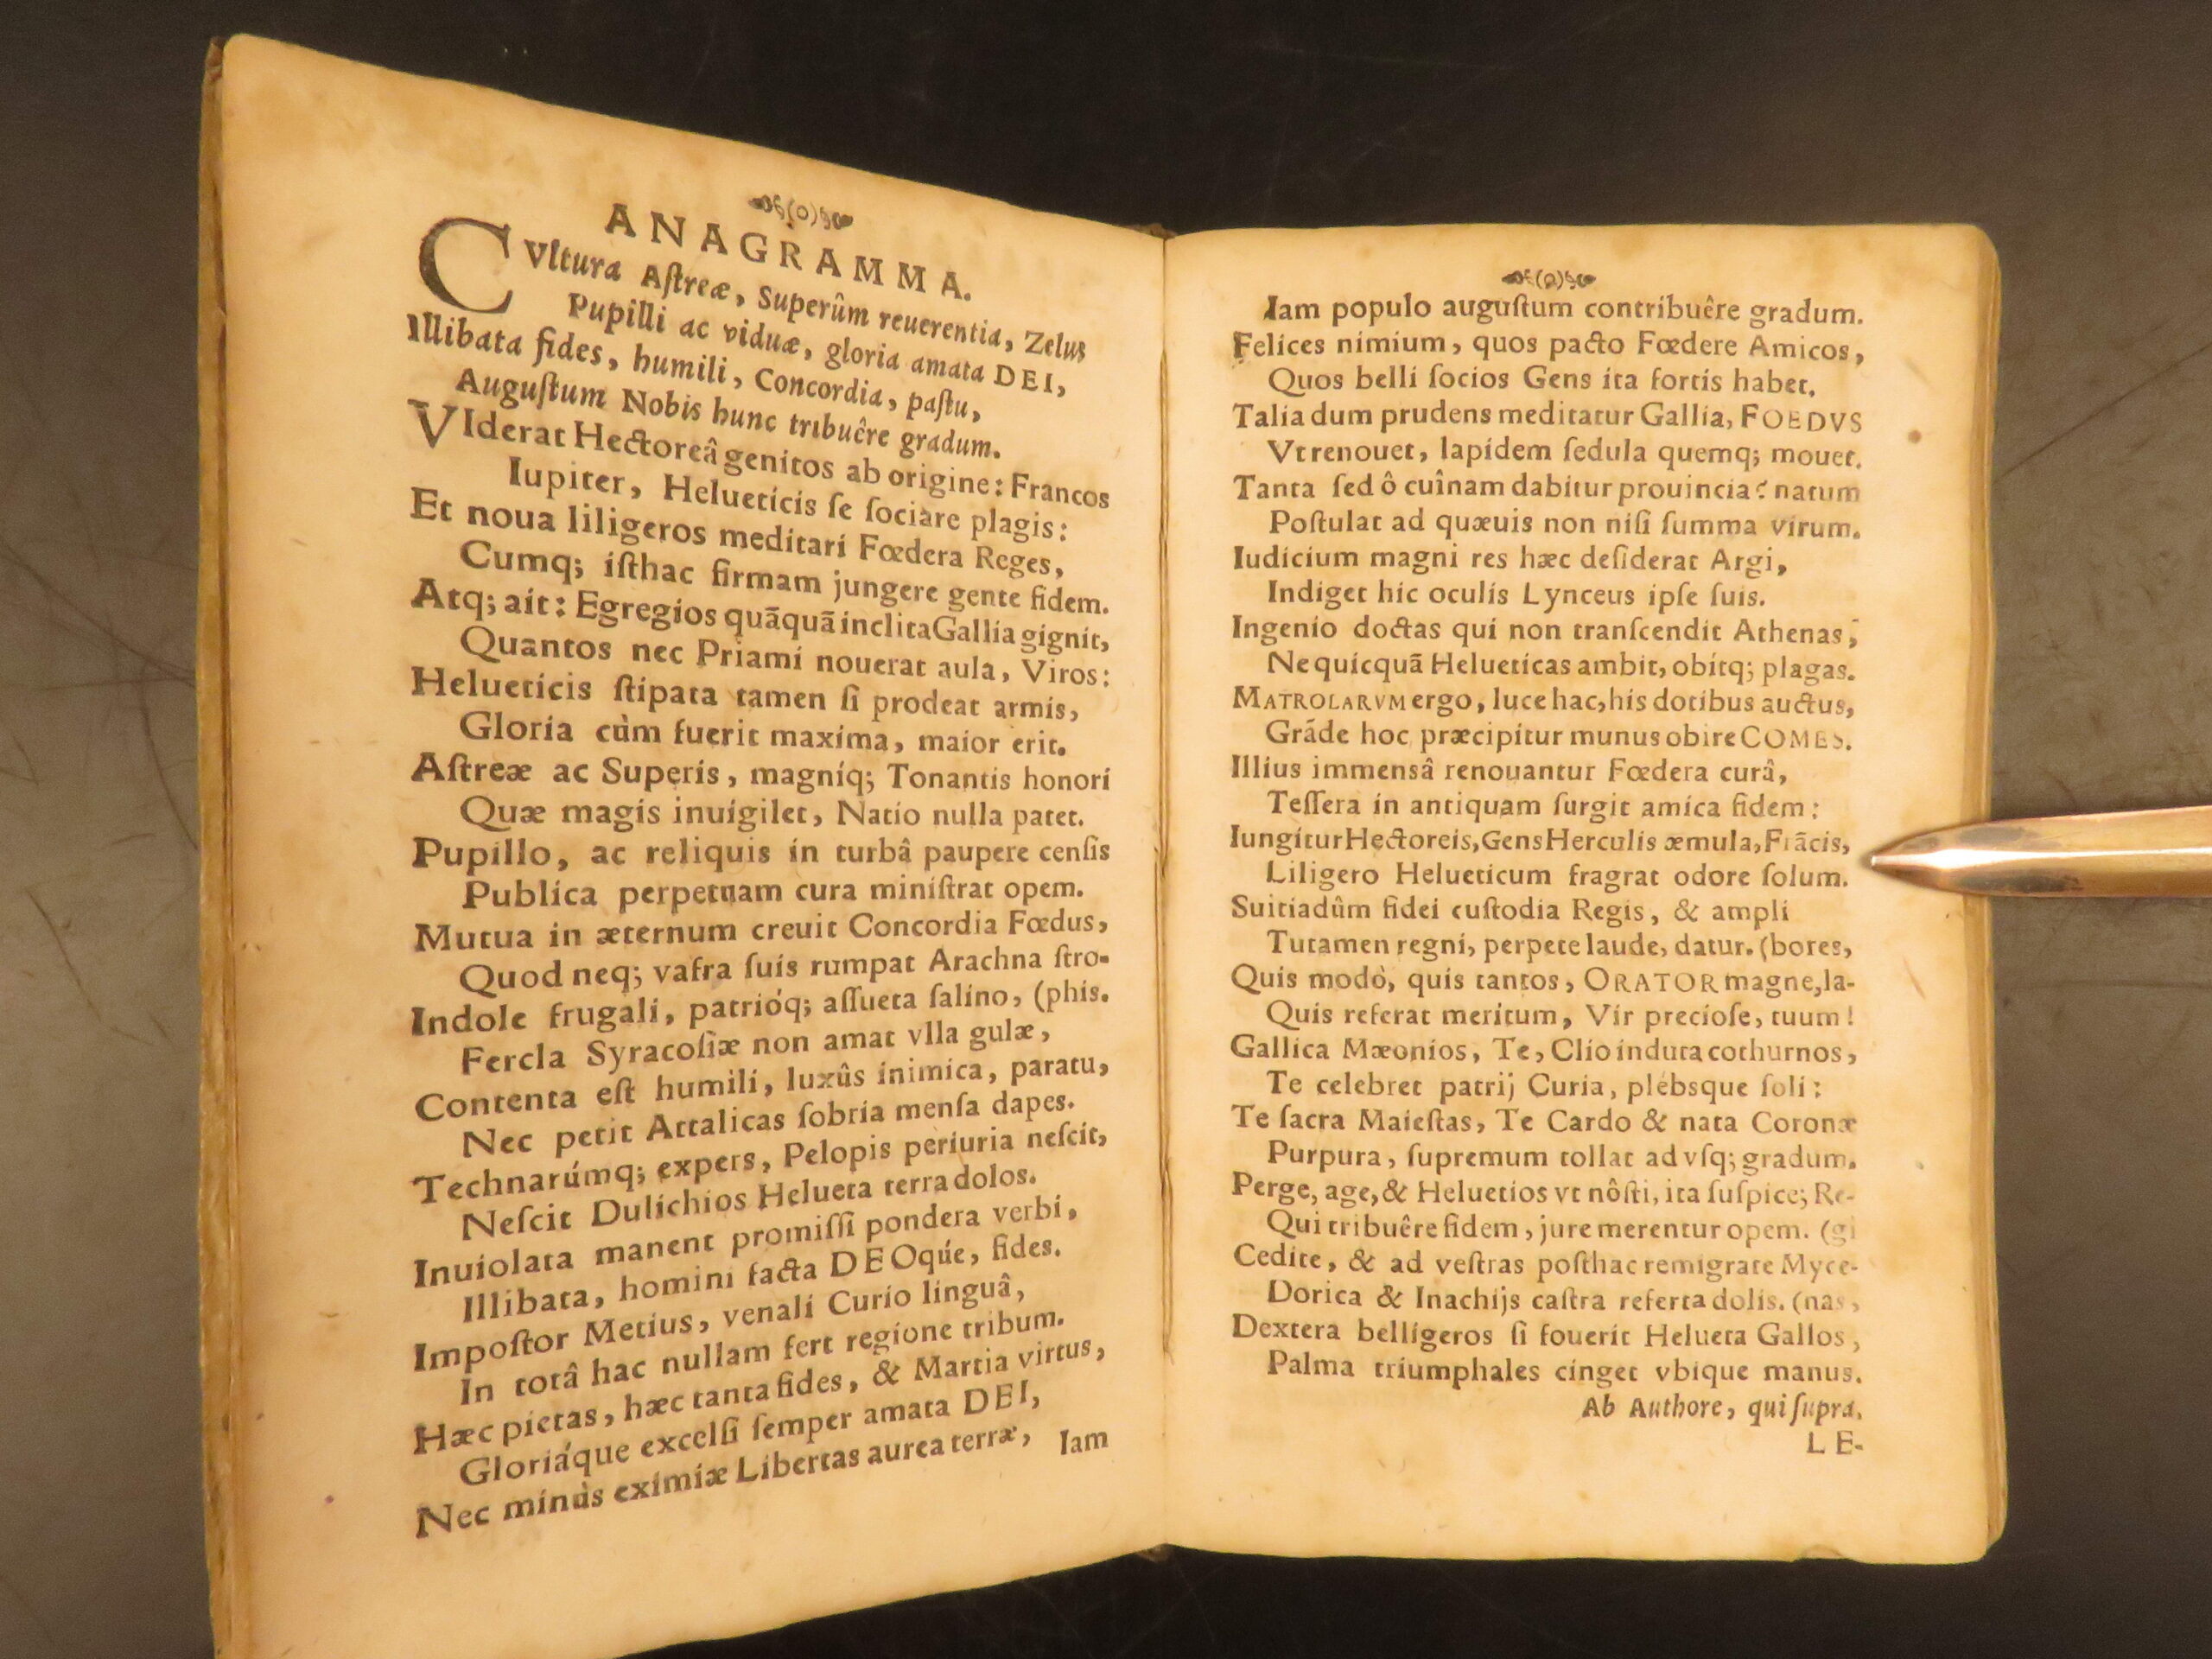 (o)
ANAGRAMMA.
CVltura Aſtreæ, Superûm reuerentia, Zelus
Pupilli ac viduæ, gloria amata DEI,
Illibata fides, humili, Concordia, paſtu,
Auguſtum Nobis hunc tribuêre gradum.
VIderat Hectoreâ genitos ab origine: Francos
Iupiter, Helueticis ſe ſociare plagis:
Et noua liligeros meditari Fœdera Reges,
Cumq; iſthac firmam jungere gente fidem.
Atq; ait: Egregios quāquā inclita Gallia gignit,
Quantos nec Priami nouerat aula, Viros:
Helueticis ſtipata tamen ſi prodeat armis,
Gloria cùm fuerit maxima, maior erit.
Aſtreæ ac Superis, magniq; Tonantis honori
Quæ magis inuigilet, Natio nulla patet.
Pupillo, ac reliquis in turbâ paupere cenſis
Publica perpetuam cura miniſtrat opem.
Mutua in æternum creuit Concordia Fœdus,
Quod neq; vafra ſuis rumpat Arachna ſtro-
Indole frugali, patrióq; aſſueta ſalino, (phis.
Fercla Syracoſiæ non amat vlla gulæ,
Contenta eſt humili, luxûs inimica, paratu,
Nec petit Attalicas ſobria menſa dapes.
Technarúmq; expers, Pelopis periuria neſcit,
Neſcit Dulichios Helueta terra dolos.
Inuiolata manent promiſſi pondera verbi,
Illibata, homini facta DEOqúe, fides.
Impoſtor Metius, venali Curio linguâ,
In totâ hac nullam fert regione tribum.
Hæc pietas, hæc tanta fides, & Martia virtus,
Gloriáque excelſi ſemper amata DEI,
Nec minùs eximiæ Libertas aurea terræ,
Iam
(o)
Iam populo auguſtum contribuêre gradum.
Felices nimium, quos pacto Fœdere Amicos,
Quos belli ſocios Gens ita fortis habet.
Talia dum prudens meditatur Gallia, FOEDVS
Vt renouet, lapidem ſedula quemq; mouet.
Tanta ſed ô cuînam dabitur prouincia? natum
Poſtulat ad quæuis non niſi ſumma virum.
Iudicium magni res hæc deſiderat Argi,
Indiget hic oculis Lynceus ipſe ſuis.
Ingenio doctas qui non tranſcendit Athenas,
Nequicquā Helueticas ambit, obitq; plagas.
MATROLARVM ergo, luce hac, his dotibus auctus,
Grāde hoc præcipitur munus obire COMES.
Illius immensâ renouantur Fœdera curâ,
Teſſera in antiquam ſurgit amica fidem:
Iungitur Hectoreis, Gens Herculis æmula, Frācis,
Liligero Helueticum fragrat odore ſolum.
Suitiadûm fidei cuſtodia Regis, & ampli
Tutamen regni, perpete laude, datur. (bores,
Quis modò, quis tantos, ORATOR magne, la-
Quis referat meritum, Vir precioſe, tuum!
Gallica Mæonios, Te, Clio induta cothurnos,
Te celebret patrij Curia, plébsque ſoli:
Te ſacra Maieſtas, Te Cardo & nata Coronæ
Purpura, ſupremum tollat ad vſq; gradum.
Perge, age, & Heluetios vt nôſti, ita ſuſpice; Re-
Qui tribuêre fidem, jure merentur opem. (gi
Cedite, & ad veſtras poſthac remigrate Myce-
Dorica & Inachijs caſtra referta dolis. (nas,
Dextera belligeros ſi fouerit Helueta Gallos,
Palma triumphales cinget vbique manus.
Ab Authore, qui ſupra.
LE-